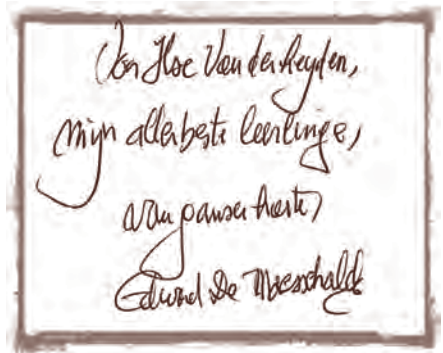 Voor Ilse Van der Heyden,
mijn allerbeste leerlinge,
van ganser harte,
Edward De Maesschalck